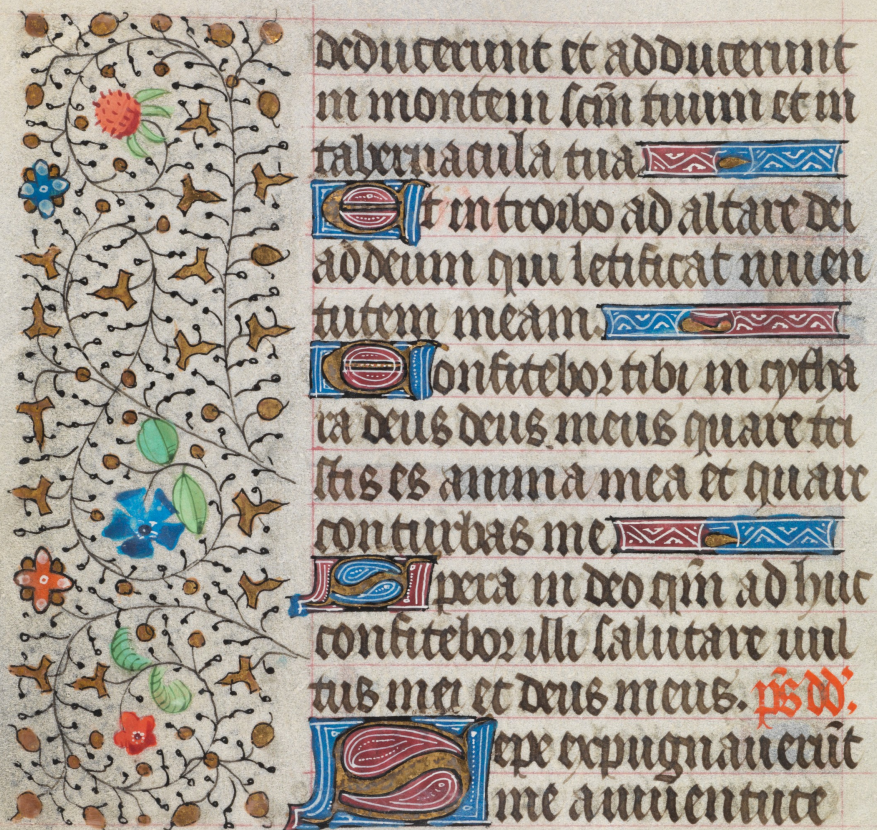 deduxerunt et adduxerunt
in montem scm̄ tuum et in
tabernacula tua
Et introibo ad altare dei
ad deum qui letificat iuuen
tutem meam.
Confitebor tibi in cytha
ra deus deus meus quare tri
stis es anima mea et quare
conturbas me
Spera in deo qm̄ ad huc
confitebor illi salutare uul
tus mei et deus meus. ps̄ dd:
Sepe expugnauerūt
me a iuuentute